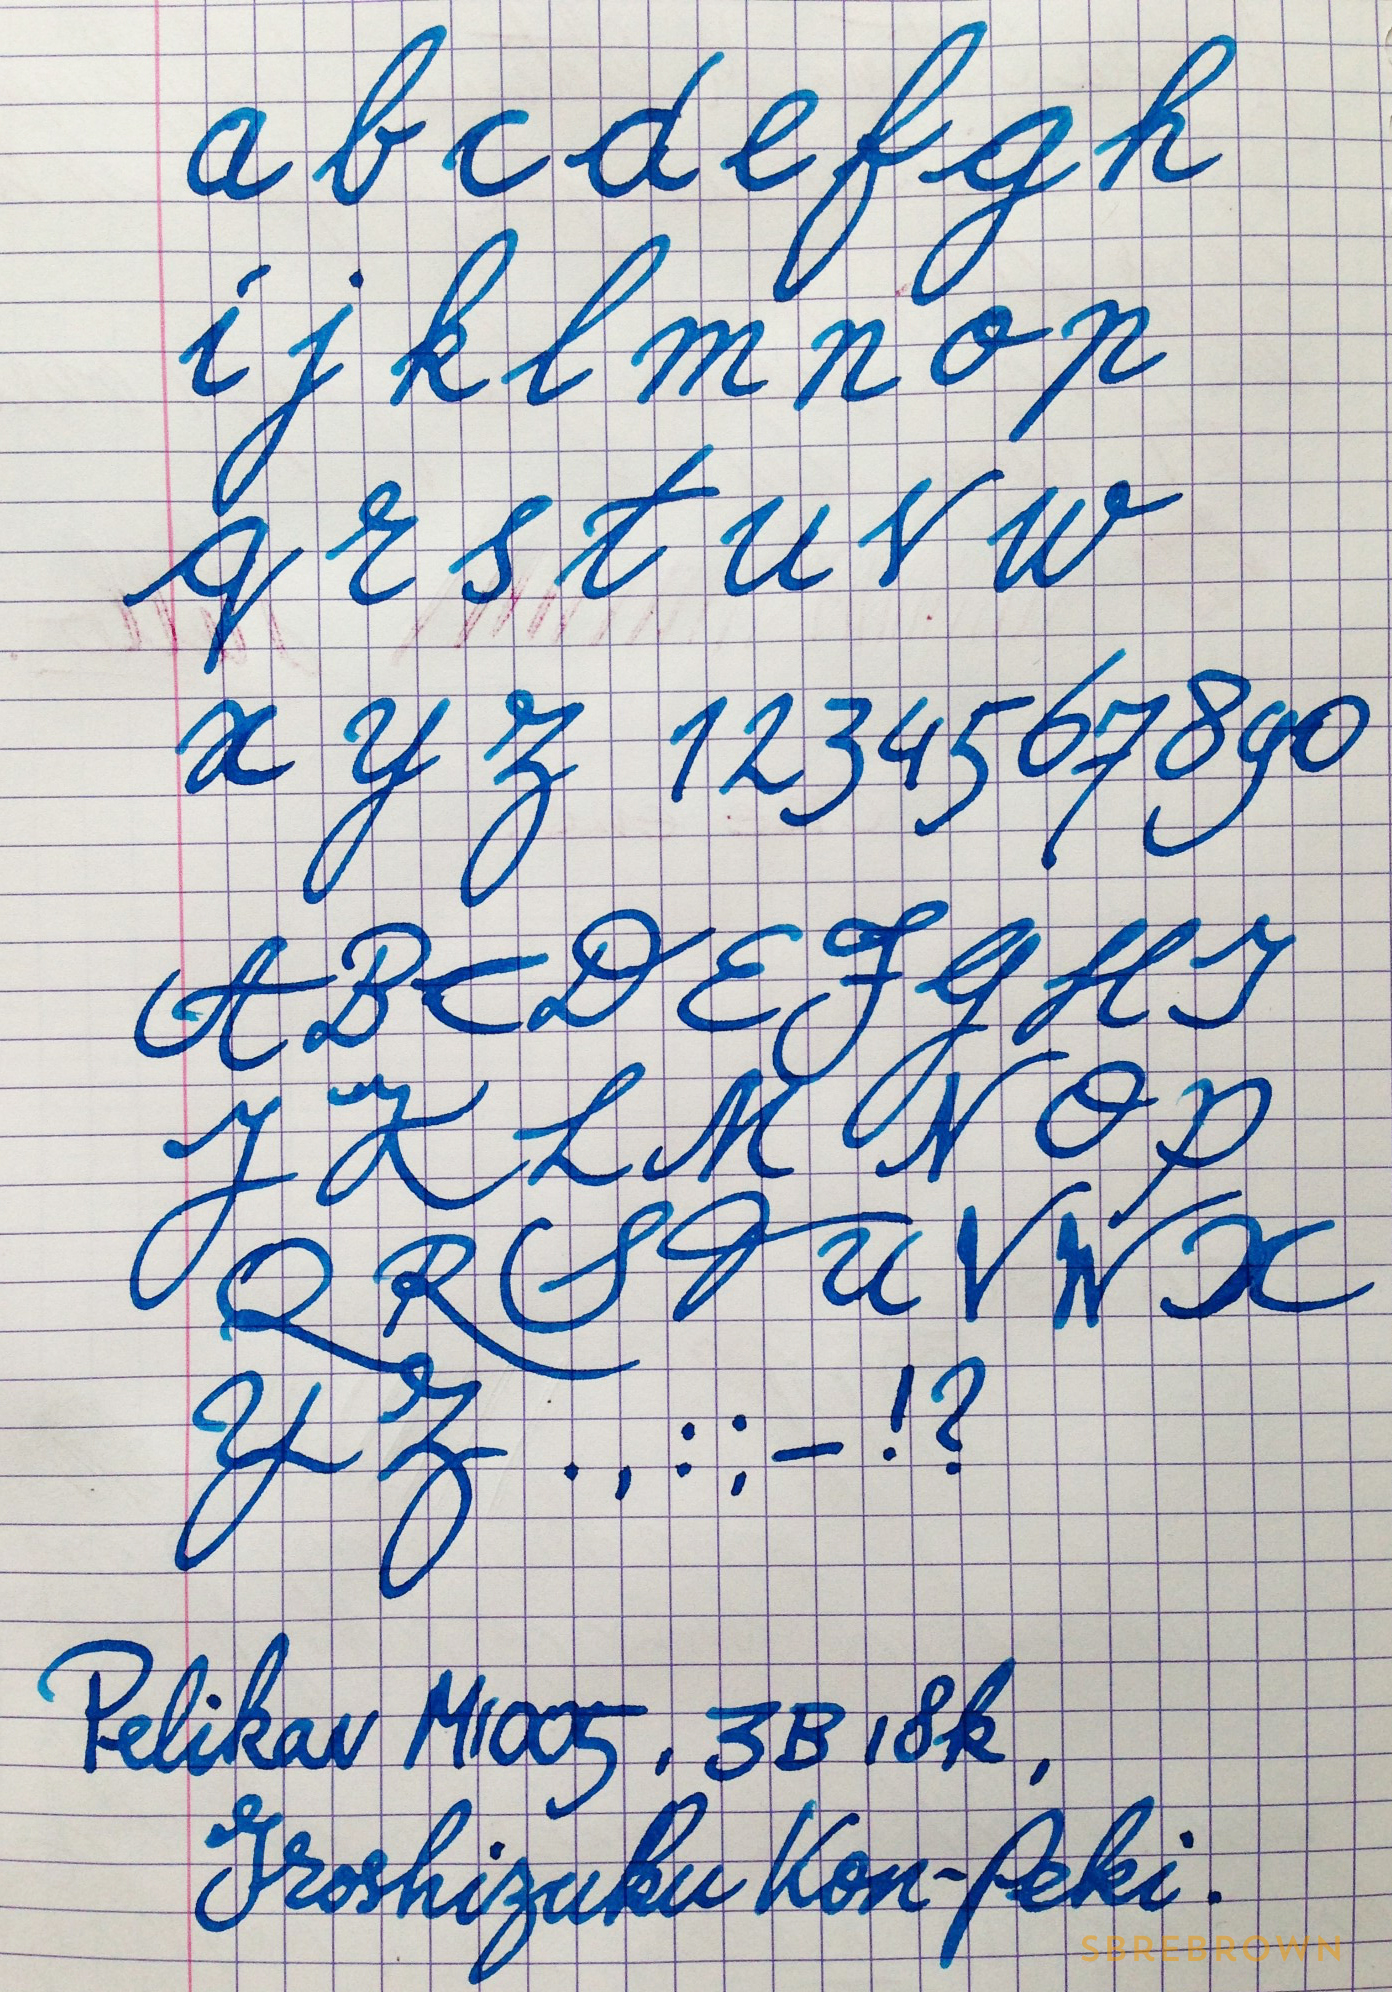 a b c d e f g h
i j k l m n o p
q r s t u v w
x y z 1 2 3 4 5 6 7 8 9 0
A B C D E F G H I
J K L M N O P
Q R S T U V W X
Y Z . , : ; - ! ?
Pelikan M1005, 3B 18k,
Iroshizuku Kon-Peki.
SBREBROWN